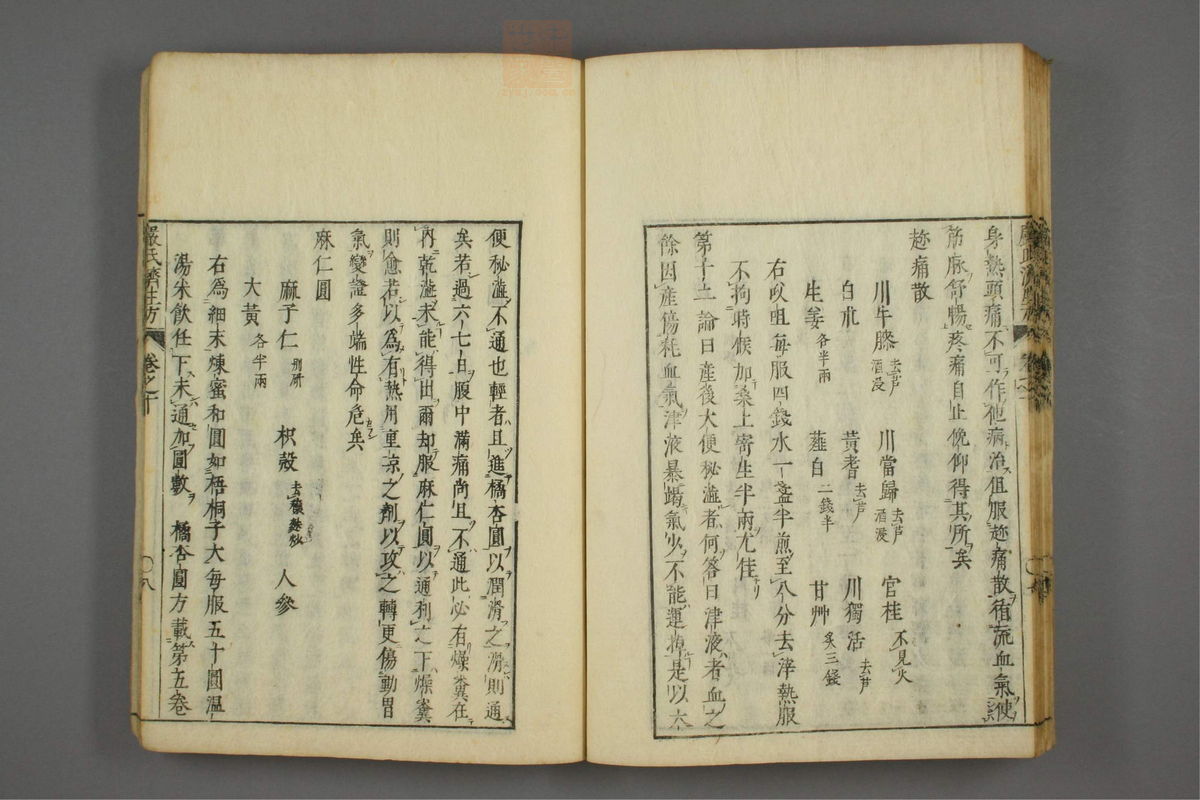 身熱頭痛不可作他病治但服趂痛散循流血氣使
筋脉舒暢疼痛自止俛仰得其所矣
趂痛散
川牛膝去芦酒浸 川當歸去芦酒浸 官桂不見火
白朮 黃耆去芦 川獨活去芦
生姜各半兩 薤白二錢半 甘艸炙三錢
右㕮咀每服四錢水一盞半煎至八分去滓熱服
不拘時候加桑上寄生半兩尤佳
第十二論曰產後大便秘澁者何答曰津液者血之
餘因產傷耗血氣津液暴竭氣少不能運掉是以大
便秘澁不通也輕者且進橘杏圓以潤滑之滑則通
矣若過六七日腹中滿痛尚且不通此必有燥糞在
內乾澁未能得出爾却服麻仁圓以通利之下燥糞
則愈若以爲有熱用重凉之劑以攻之轉更傷動胃
氣變證多端性命危矣
麻仁圓
麻子仁別研 枳殼去穰麩炒 人參
大黃各半兩
右爲細末煉蜜和圓如梧桐子大每服五十圓溫
湯米飲任下未通加圓數 橘杏圓方載第五卷
嚴氏濟生方 卷之十 〇八